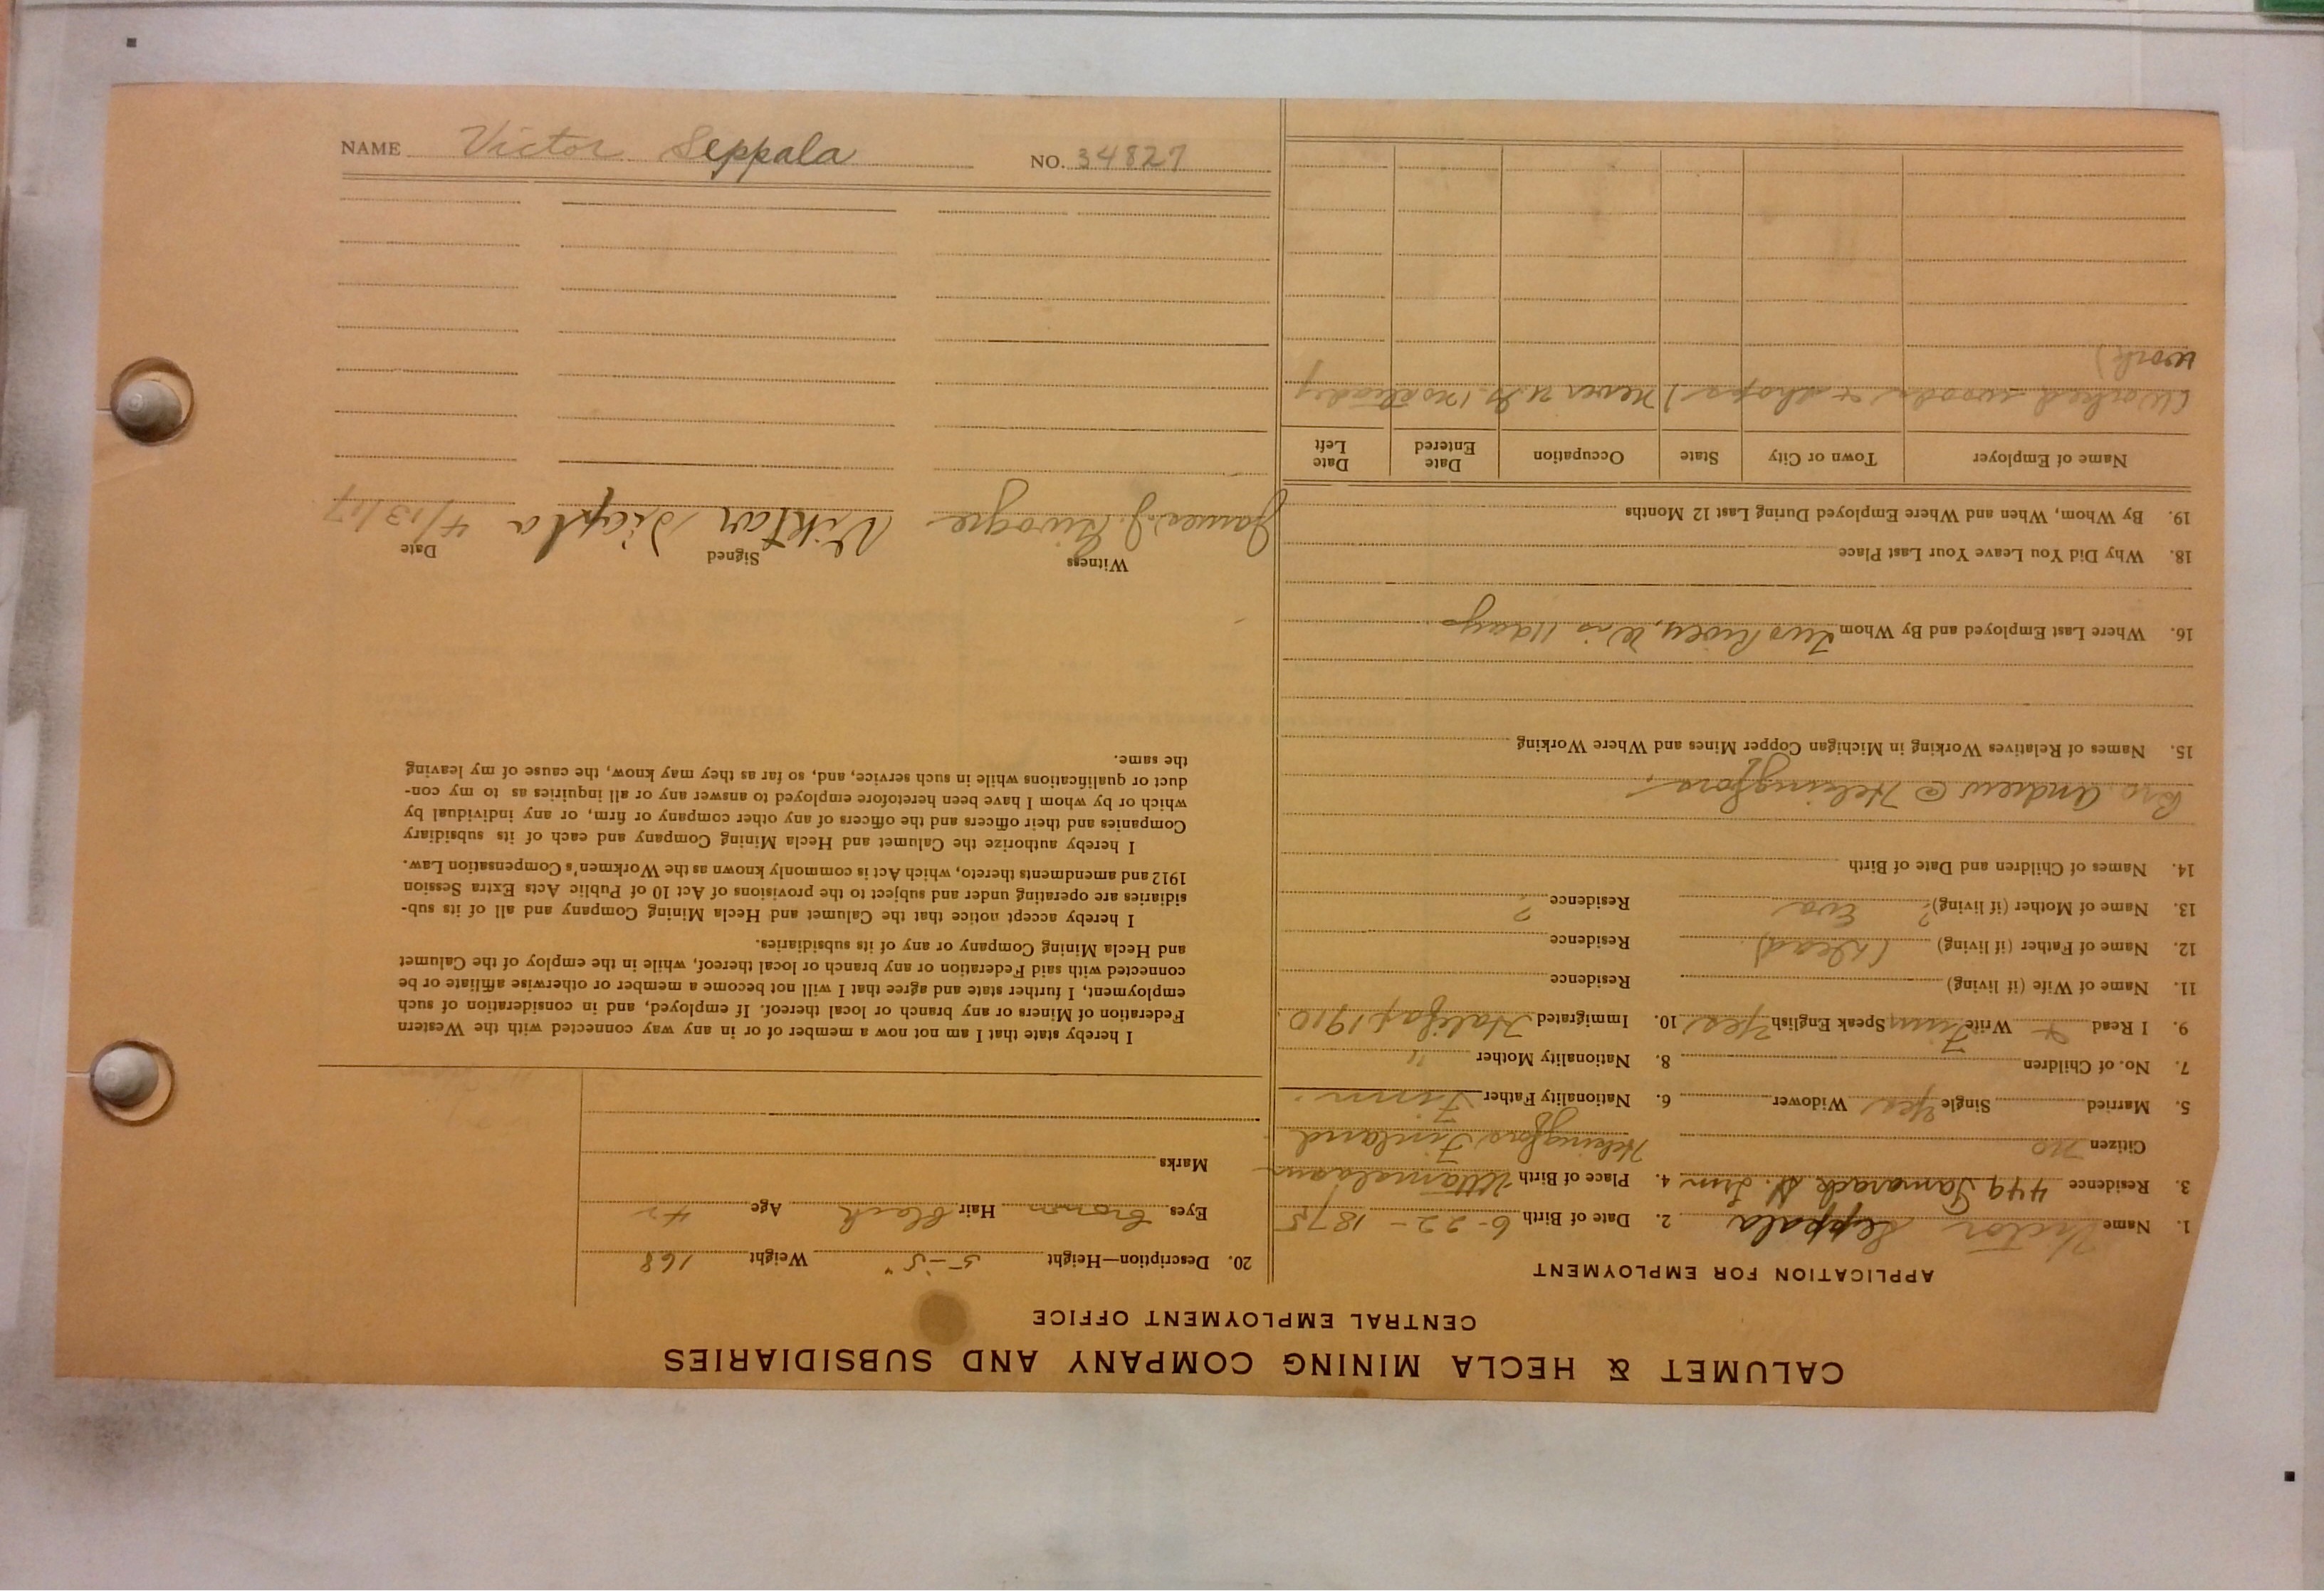 NAME Victor Seppala NO. 34827
CALUMET & HECLA MINING COMPANY AND SUBSIDIARIES
CENTRAL EMPLOYMENT OFFICE
APPLICATION FOR EMPLOYMENT
1. Name Victor Seppala 2. Date of Birth 6-22-1875
3. Residence 449 Tamarack St. 4. Place of Birth
Citizen no Helsingfors Finland
5. Married Single Yes Widower 6. Nationality Father Finn.
7. No. of Children 8. Nationality Mother "
9. I Read + Write Finn Speak English Yes 10. Immigrated Halifax 1910
11. Name of Wife (if living) Residence
12. Name of Father (if living) (Dead) Residence
13. Name of Mother (if living) ? Eva Residence ?
14. Names of Children and Date of Birth
Bro Andrew @ Helsingfors.
15. Names of Relatives Working in Michigan Copper Mines and Where Working
16. Where Last Employed and By Whom Two Rivers, Wis 11 days.
18. Why Did You Leave Your Last Place
19. By Whom, When and Where Employed During Last 12 Months
Name of Employer Town or City State Occupation Date Entered Date Left
(Worked woods + shops) never U.G. (no steady
work)
20. Description—Height 5-5" Weight 168
Eyes Brown Hair Black Age 42
Marks
I hereby state that I am not now a member of or in any way connected with the Western
Federation of Miners or any branch or local thereof. If employed, and in consideration of such
employment, I further state and agree that I will not become a member or otherwise affiliate or be
connected with said Federation or any branch or local thereof, while in the employ of the Calumet
and Hecla Mining Company or any of its subsidiaries.
I hereby accept notice that the Calumet and Hecla Mining Company and all of its sub-
sidiaries are operating under and subject to the provisions of Act 10 of Public Acts Extra Session
1912 and amendments thereto, which Act is commonly known as the Workmen's Compensation Law.
I hereby authorize the Calumet and Hecla Mining Company and each of its subsidiary
Companies and their officers and the officers of any other company or firm, or any individual by
which or by whom I have been heretofore employed to answer any or all inquiries as to my con-
duct or qualifications while in such service, and, so far as they may know, the cause of my leaving
the same.
Witness Signed Date
James J. Viktor 4/13/17